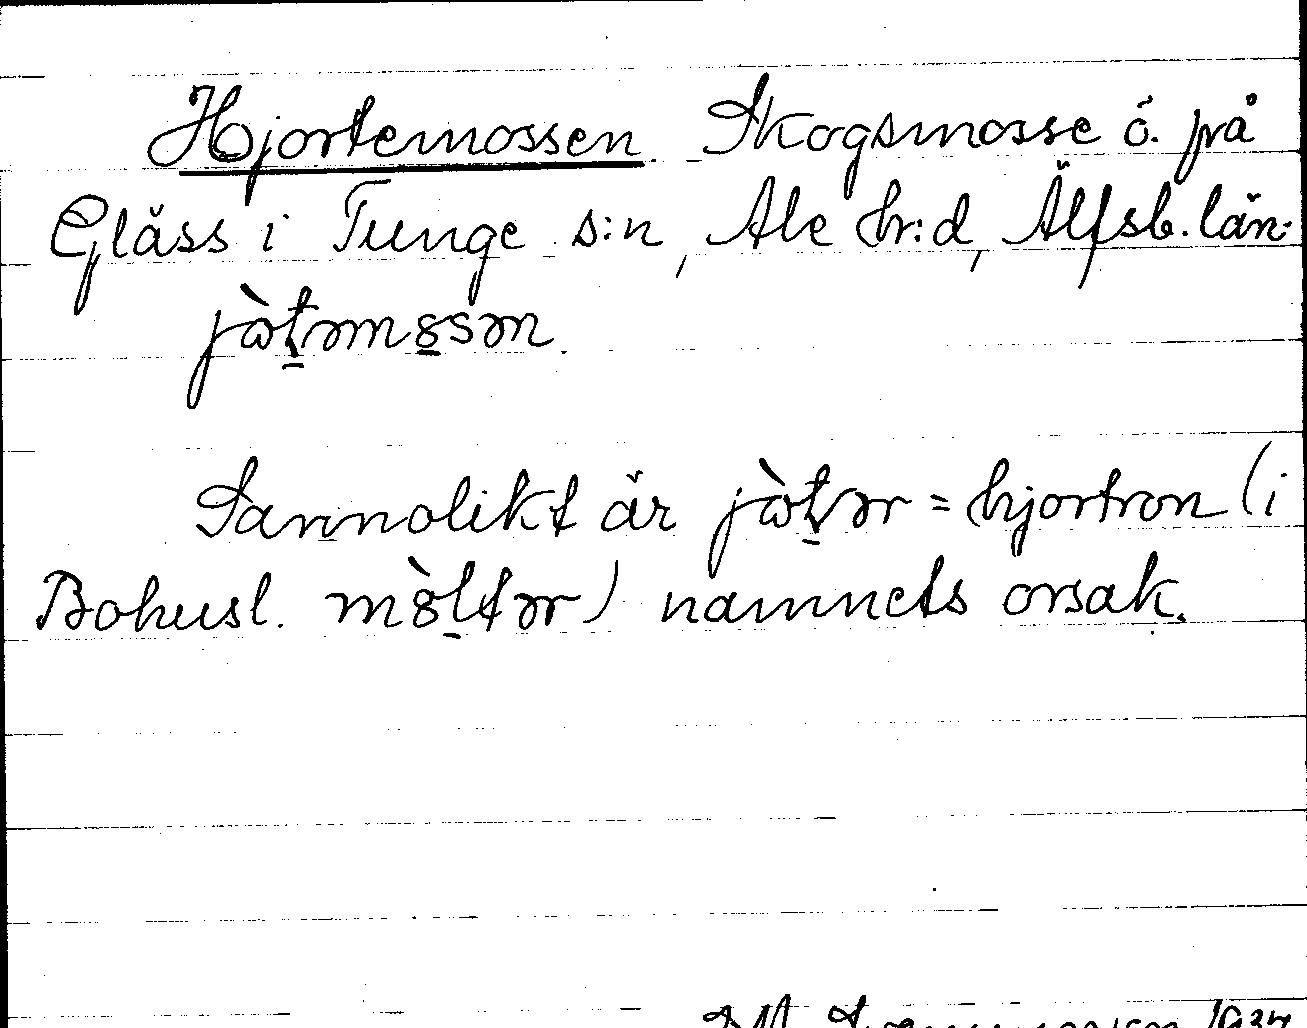 Hjortemossen. Skogsmosse ö. frå
Gläss i Tunge s:n, Ale hr:d, Älfsb. län.
jòt̠əm8̠sən.
Sannolikt är jòt̠ər = hjortron (i
Bohusl. m8̠̀ltər) namnets orsak.